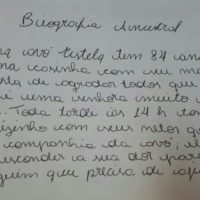 Biografia Ancestral
vovó Estela tem 84 an
na cozinha com seu m
sta de agradar todos que
é uma senhora muito
... Toda tarde às 14 h
zinho com seus netos q
companhia da vovó, el
esconder a sua dor par
guém que precisa de